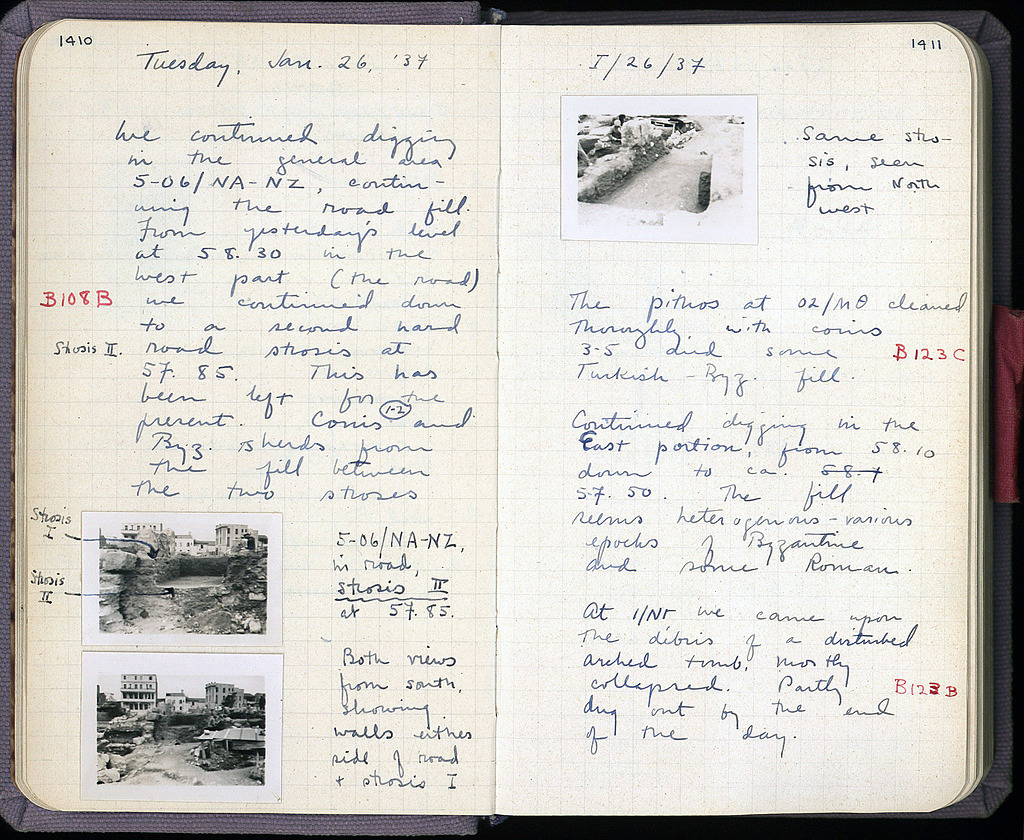 1410
Tuesday, Jan. 26, '37
We continued digging
in the general area
5-06/NA-NZ, contin-
uing the road fill.
From yesterday's level
at 58.30 in the
West part (the road)
B108B
we continued down
to a second hard
Strosis II.
road strosis at
57.85. This has
been left for the
present. Coins 1-2 and
Byz. sherds from
the fill between
the two stroses
Strosis
I
Strosis
II
5-06/NA-NZ,
in road,
strosis II
at 57.85.
Both views
from south,
showing
walls either
side of road
+ strosis I
1411
I/26/37
Same stro-
sis, seen
from North
west
The pithos at 02/ΜΘ cleaned
thoroughly with coins
3-5 and some
B123C
Turkish-Byz. fill.
Continued digging in the
East portion, from 58.10
down to ca. 58.4
57.50. The fill
seems heterogenious-various
epochs of Byzantine
and some Roman.
At 1/ΝΓ we came upon
the débris of a disturbed
arched tomb, mostly
collapsed. Partly
B123B
dug out by the end
of the day.